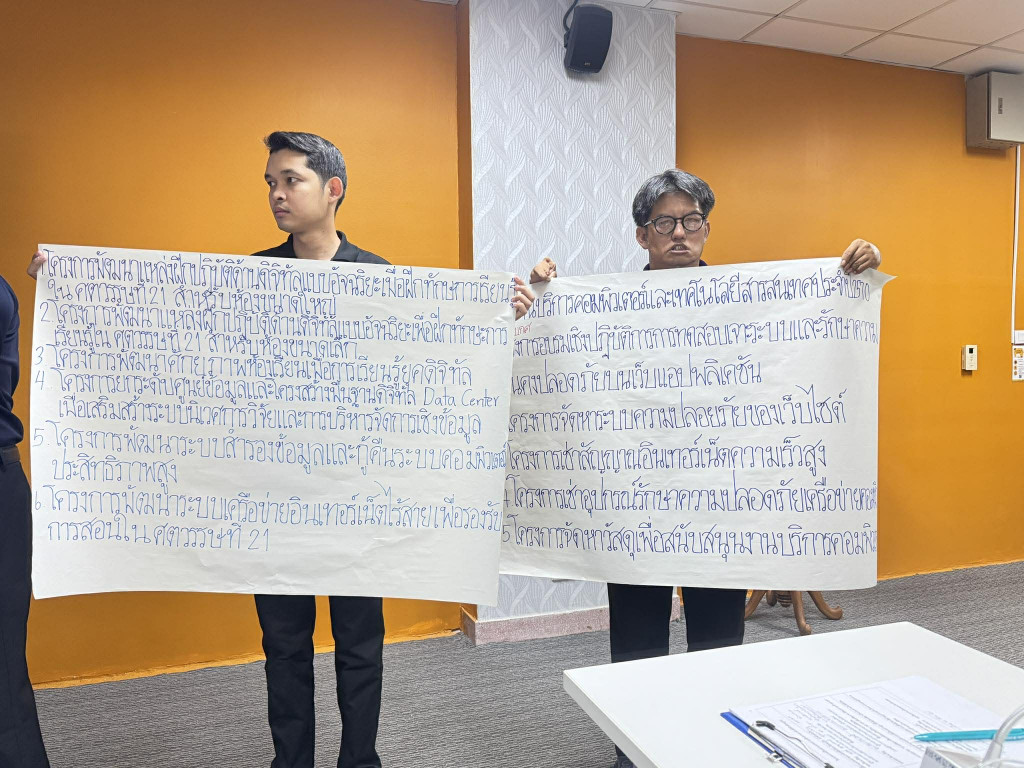 โครงการพัฒนาแหล่งฝึกปฏิบัติด้านดิจิทัลแบบอัจฉริยะเพื่อฝึกทักษะการเรียนรู้
ใน ศตวรรษที่ 21 สำหรับห้องขนาดใหญ่
2. โครงการพัฒนาแหล่งฝึกปฏิบัติด้านดิจิทัลแบบอัจฉริยะเพื่อฝึกทักษะการ
เรียนรู้ใน ศตวรรษที่ 21 สำหรับห้องขนาดเล็ก
3. โครงการพัฒนาศักยภาพห้องเรียนเพื่อการเรียนรู้ยุคดิจิทัล
4. โครงการยกระดับศูนย์ข้อมูลและโครงสร้างพื้นฐานดิจิทัล Data Center
เพื่อเสริมสร้างระบบนิเวศการวิจัยและการบริหารจัดการเชิงข้อมูล
5. โครงการพัฒนาระบบสำรองข้อมูลและกู้คืนระบบคอมพิวเตอร์
ประสิทธิภาพสูง
6. โครงการพัฒนาระบบเครือข่ายอินเทอร์เน็ตไร้สายเพื่อรองรับ
การสอนใน ศตวรรษที่ 21
บริการคอมพิวเตอร์และเทคโนโลยีสารสนเทศประจำ
การอบรมเชิงปฏิบัติการการทดสอบเจาะระบบและรักษาความ
มั่นคงปลอดภัยบนเว็บแอปพลิเคชัน
โครงการจัดหาระบบความปลอยภัยของเว็บไซต์
โครงการเช่าสัญญาณอินเทอร์เน็ตความเร็วสูง
4. โครงการเช่าอุปกรณ์รักษาความปลอดภัยเครือข่ายคอมพิ
5. โครงการจัดหาวัสดุเพื่อสนับสนุนงานบริการคอมพิว